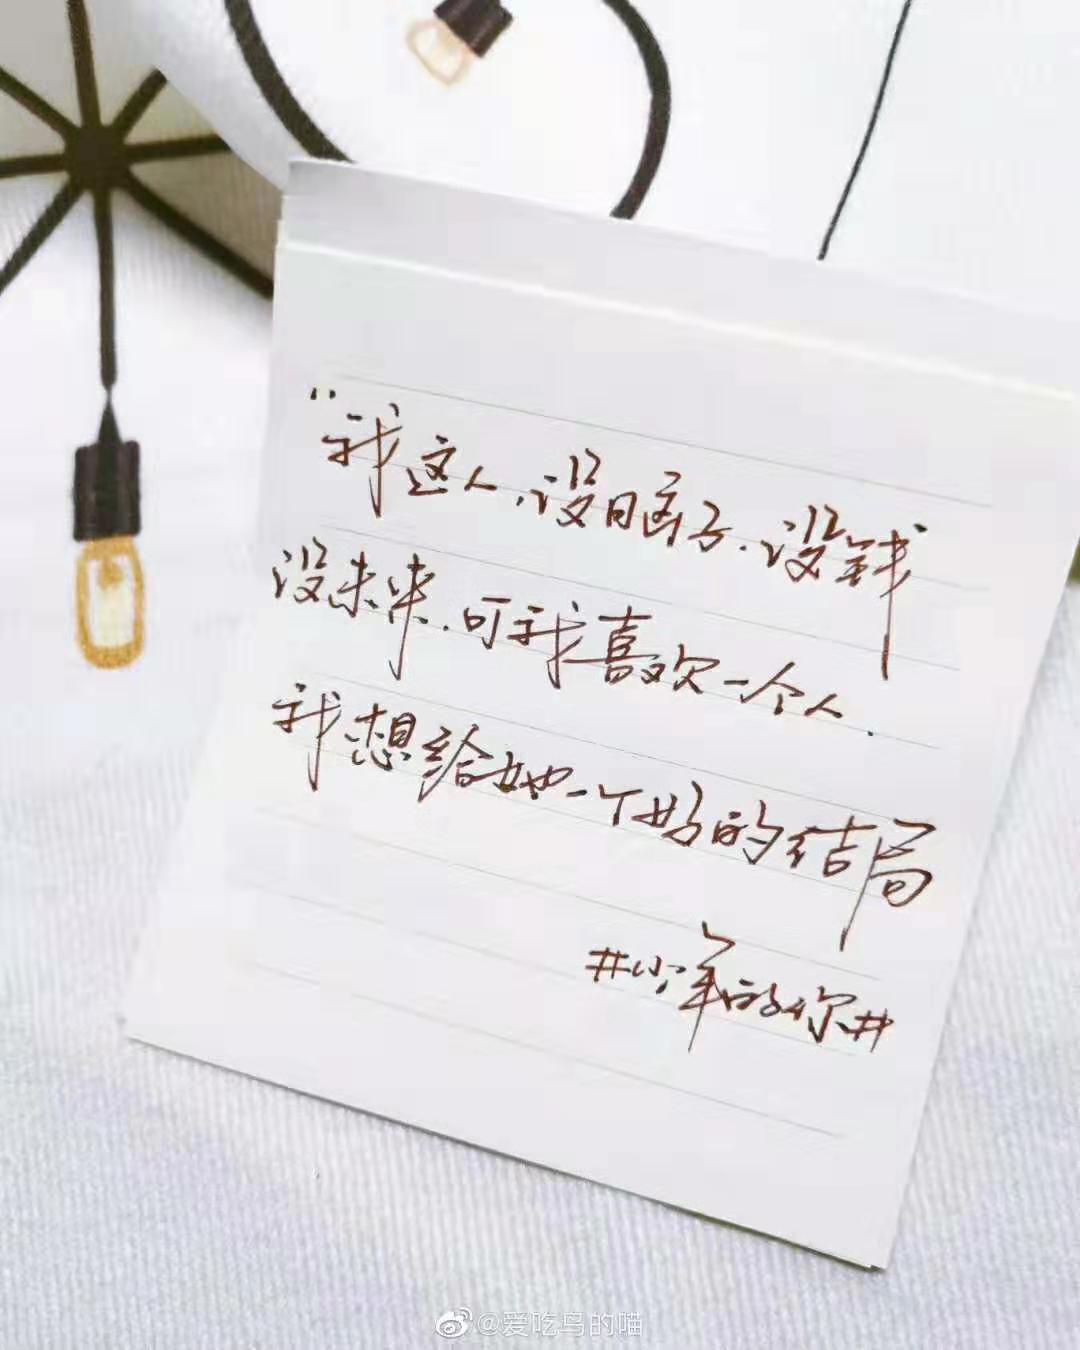 “我这人,没脑子.没钱
没未来.可我喜欢一个人.
我想给她一个好的结局
#少年的你#
@爱吃鸟的喵